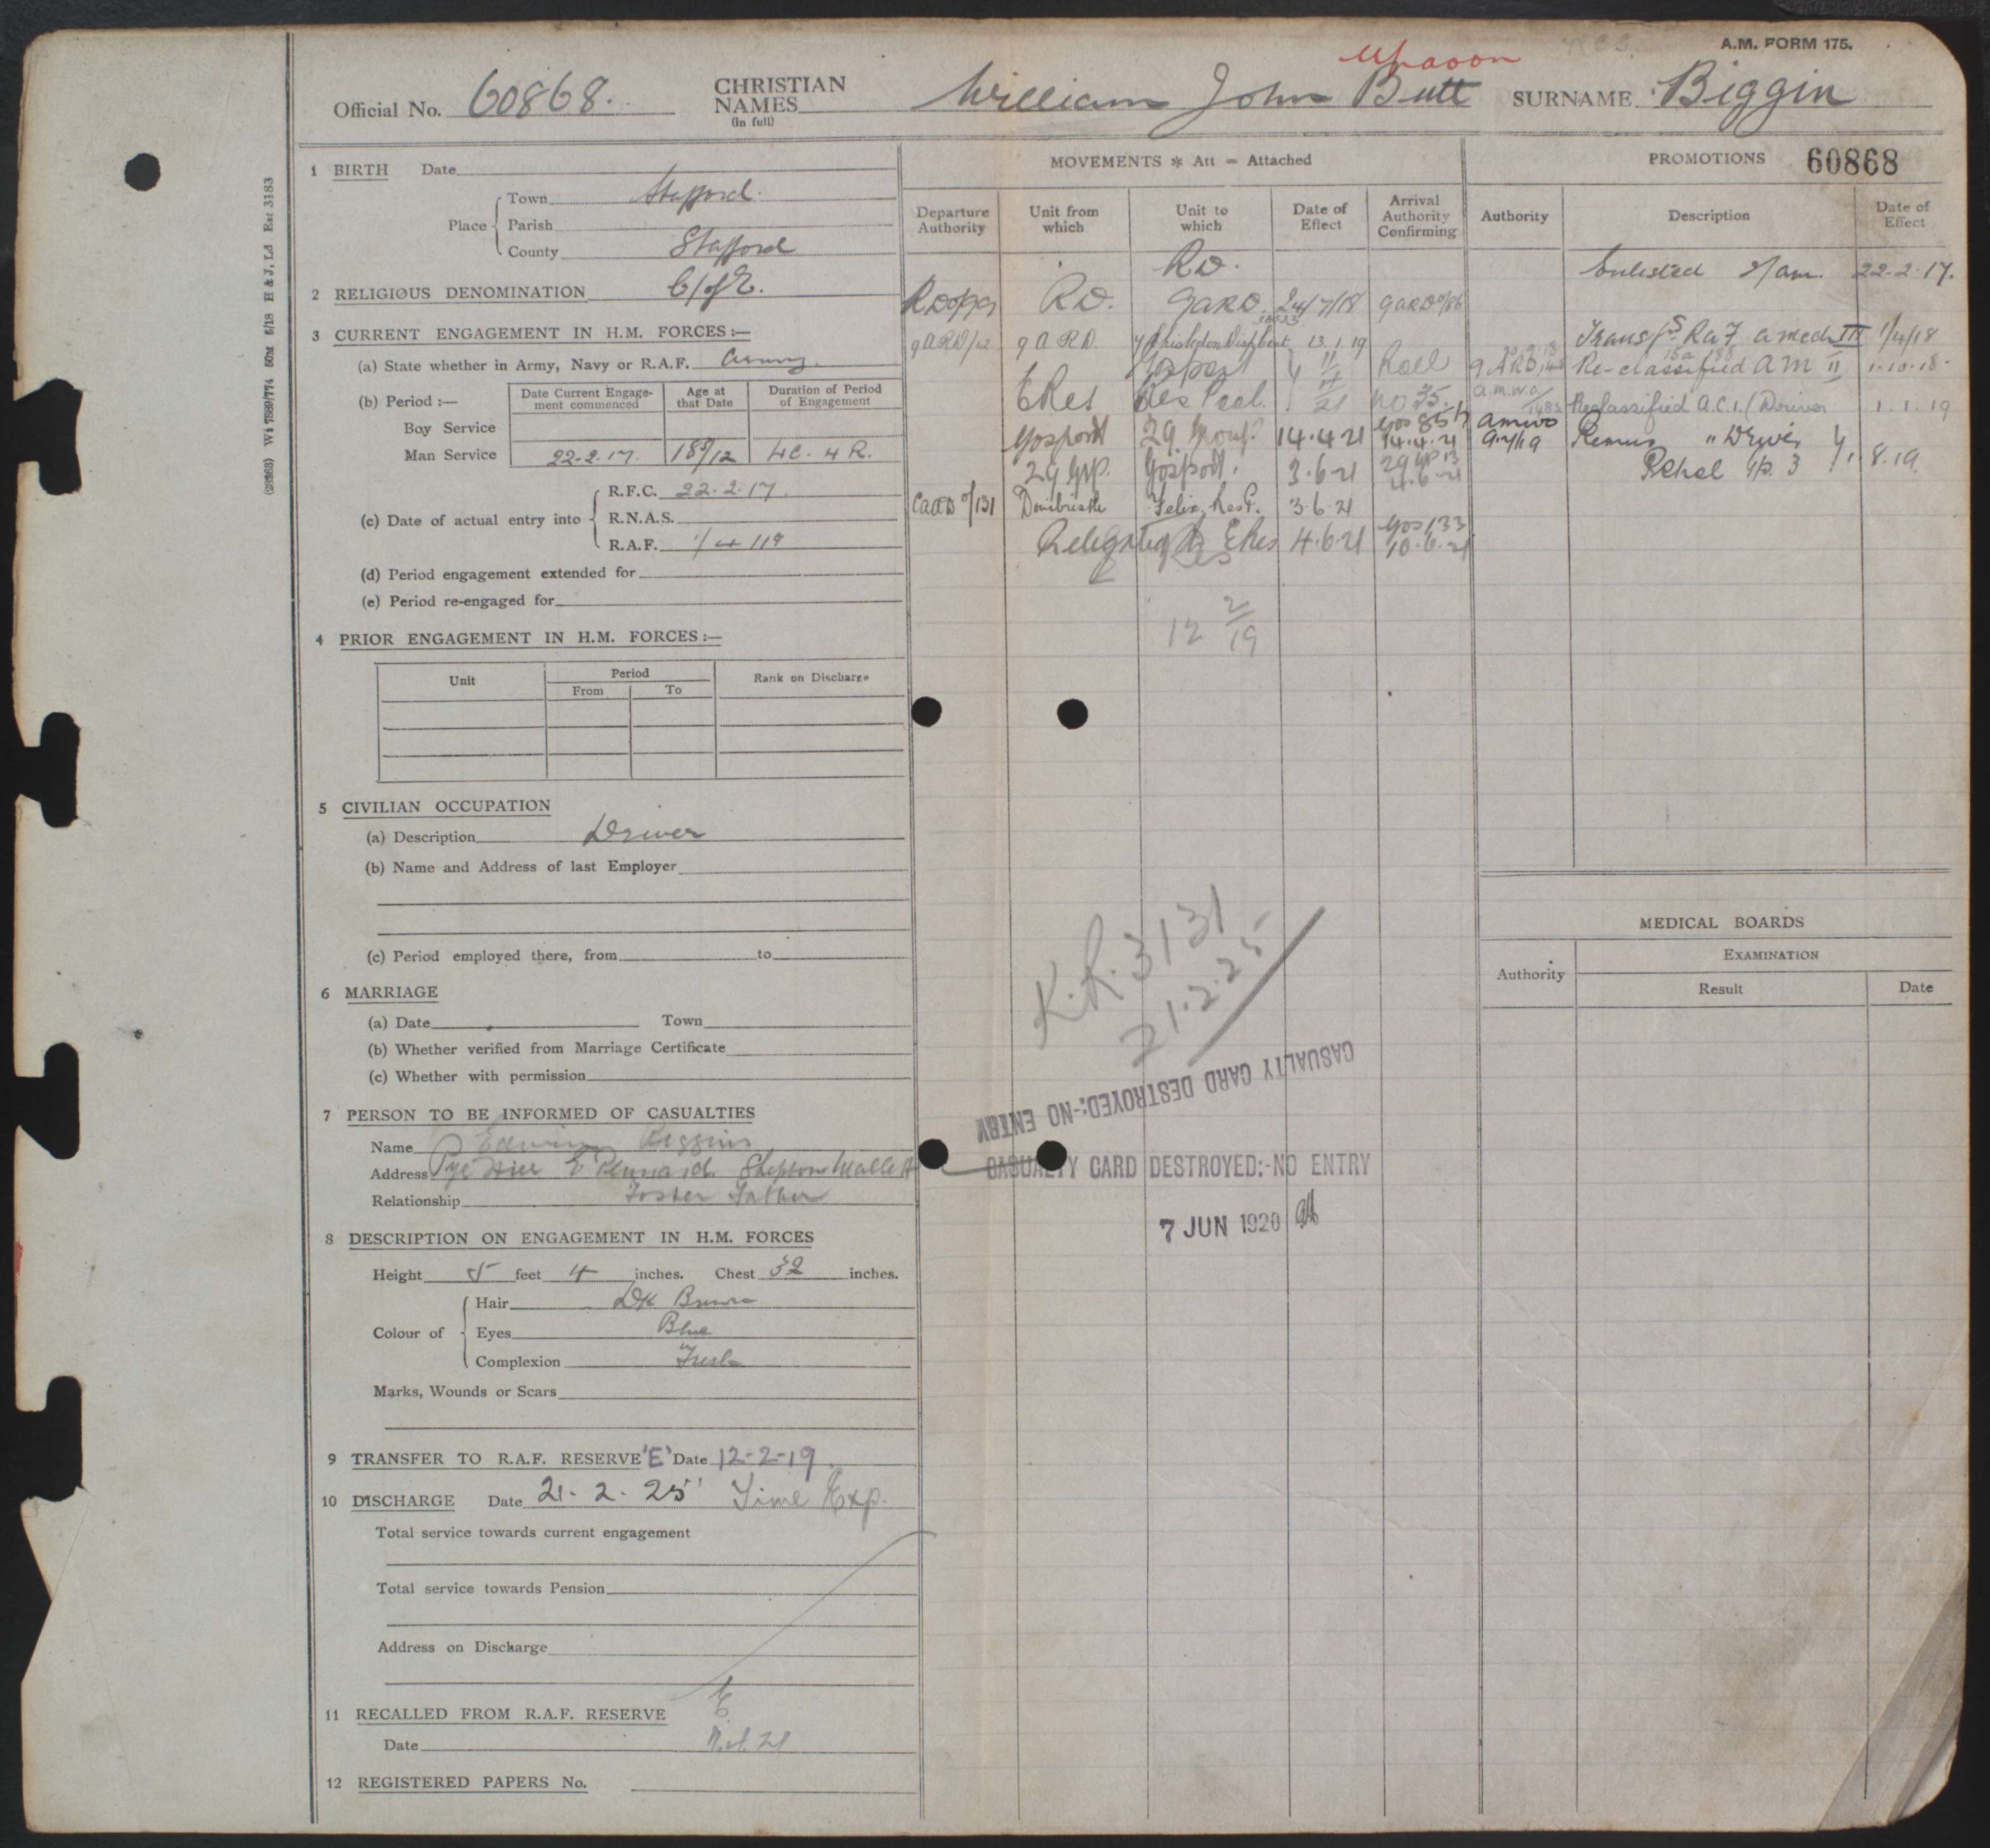 A.M. FORM 175.
Upavon
Official No. 60868. CHRISTIAN NAMES (in full) William John Butt SURNAME Biggin
(28963) Wt 7889/774 50M 6/18 H & J, Ld Est 3183
1 BIRTH Date
Place Town Stafford.
Parish
County Stafford
2 RELIGIOUS DENOMINATION C/of E.
3 CURRENT ENGAGEMENT IN H.M. FORCES:—
(a) State whether in Army, Navy or R.A.F. Army.
(b) Period:—
Date Current Engagement commenced Age at that Date Duration of Period of Engagement
Boy Service
Man Service 22-2-17. 18 9/12 4C. 4R.
(c) Date of actual entry into R.F.C. 22-2-17.
R.N.A.S.
R.A.F. 1/4/18
(d) Period engagement extended for
(e) Period re-engaged for
4 PRIOR ENGAGEMENT IN H.M. FORCES:—
Unit Period Rank on Discharge
From To
5 CIVILIAN OCCUPATION
(a) Description Driver
(b) Name and Address of last Employer
(c) Period employed there, from to
6 MARRIAGE
(a) Date Town
(b) Whether verified from Marriage Certificate
(c) Whether with permission
7 PERSON TO BE INFORMED OF CASUALTIES
Name Edwin Biggins
Address Pye Hill E Pennard Shepton Mallett
Relationship Foster Father
8 DESCRIPTION ON ENGAGEMENT IN H.M. FORCES
Height 5 feet 4 inches. Chest 32 inches.
Colour of Hair Dk Brown
Eyes Blue
Complexion Fresh
Marks, Wounds or Scars
9 TRANSFER TO R.A.F. RESERVE 'E' Date 12-2-19
10 DISCHARGE Date 21. 2. 25 Time Exp.
Total service towards current engagement
Total service towards Pension
Address on Discharge
11 RECALLED FROM R.A.F. RESERVE E
Date
12 REGISTERED PAPERS No.
MOVEMENTS * Att = Attached
Departure Authority Unit from which Unit to which Date of Effect Arrival Authority Confirming
RD.
RD. 9ARD. 24/7/18 9ARD
9ARD/12 9ARD Chisledon Disp 13.1.19
E Res Gosport
Gosport 29 Group 14.4.21 14.4.21
29 Grp. Gosport. 3.6.21 29 GP 13 4.6.21
Donibristle Felix. 3.6.21
Relegated to E Res 4.6.21 Gos 133 10.6.21
Res
12 2/19
K.R. 3131
21.2.25
CASUALTY CARD DESTROYED:-NO ENTRY
CASUALTY CARD DESTROYED:-NO ENTRY
7 JUN 1920
PROMOTIONS 60868
Authority Description Date of Effect
Enlisted 2/am. 22-2-17.
Transf RAF a mech III 1/4/18
9ARD Re-classified AM II 1-10-18.
a.m.w.o/1483 Reclassified A.C.1. (Driver 1.1.19
amwo 947/19 Remus " Driver
Rehel Gp. 3 1.8.19
MEDICAL BOARDS
Authority EXAMINATION
Result Date